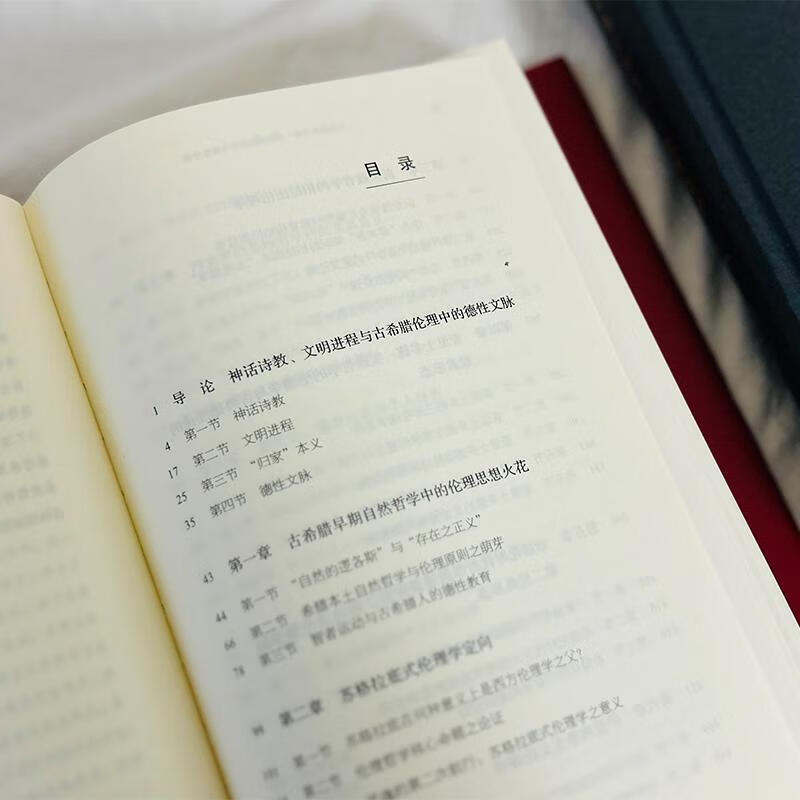 目 录
1 导 论 神话诗教、文明进程与古希腊伦理中的德性文脉
4 第一节 神话诗教
17 第二节 文明进程
25 第三节 “归家”本义
35 第四节 德性文脉
43 第一章 古希腊早期自然哲学中的伦理思想火花
44 第一节 “自然的逻各斯”与“存在之正义”
66 第二节 希腊本土自然哲学与伦理原则之萌芽
78 第三节 智者运动与古希腊人的德性教育
第二章 苏格拉底式伦理学定向
第一节 苏格拉底在何种意义上是西方伦理学之父?
第二节 伦理哲学核心命题之论证
的第二次航行:苏格拉底式伦理学之意义